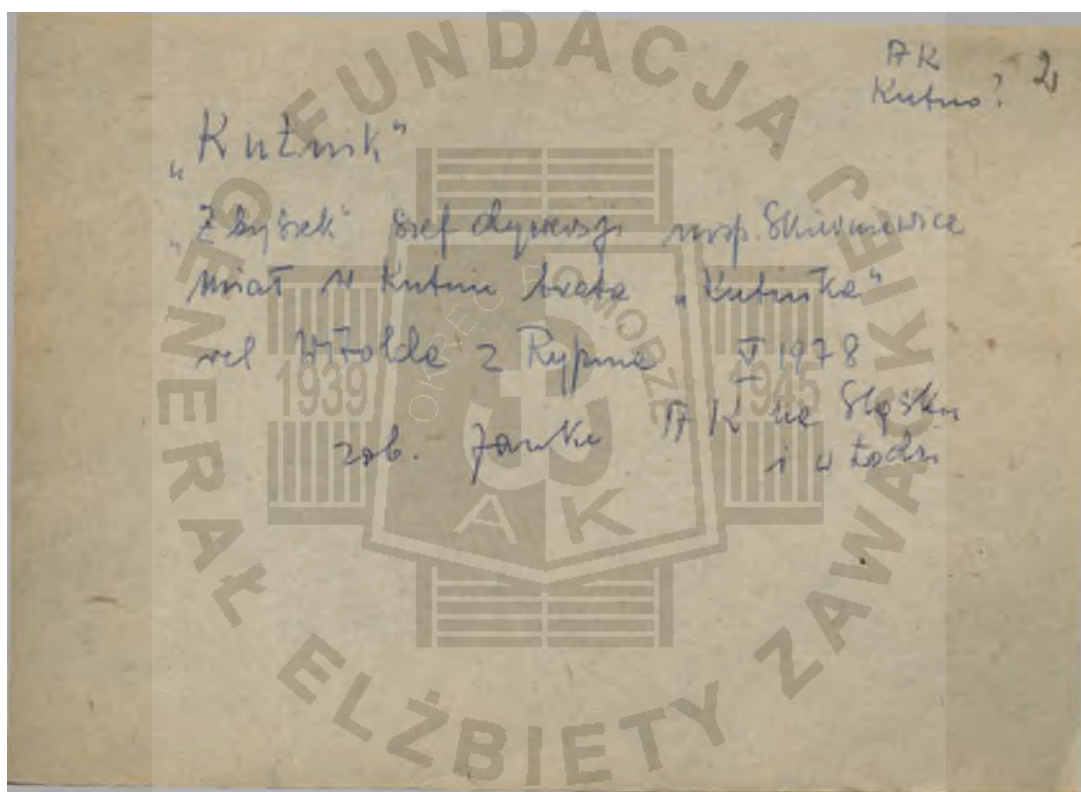 AK 2
Kutno?
„Kutnik"
„Zbyszek" szef dywersji insp. Skierniewice
miał w Kutnie brata „Kutnika"
rel Witolda z Rypina V 1978
zob. Janke AK na Śląsku
i w Łodzi
FUNDACJA
GENERAŁ ELŻBIETY ZAWACKIEJ
OKRĘG POMORZE
1939 1945
AK